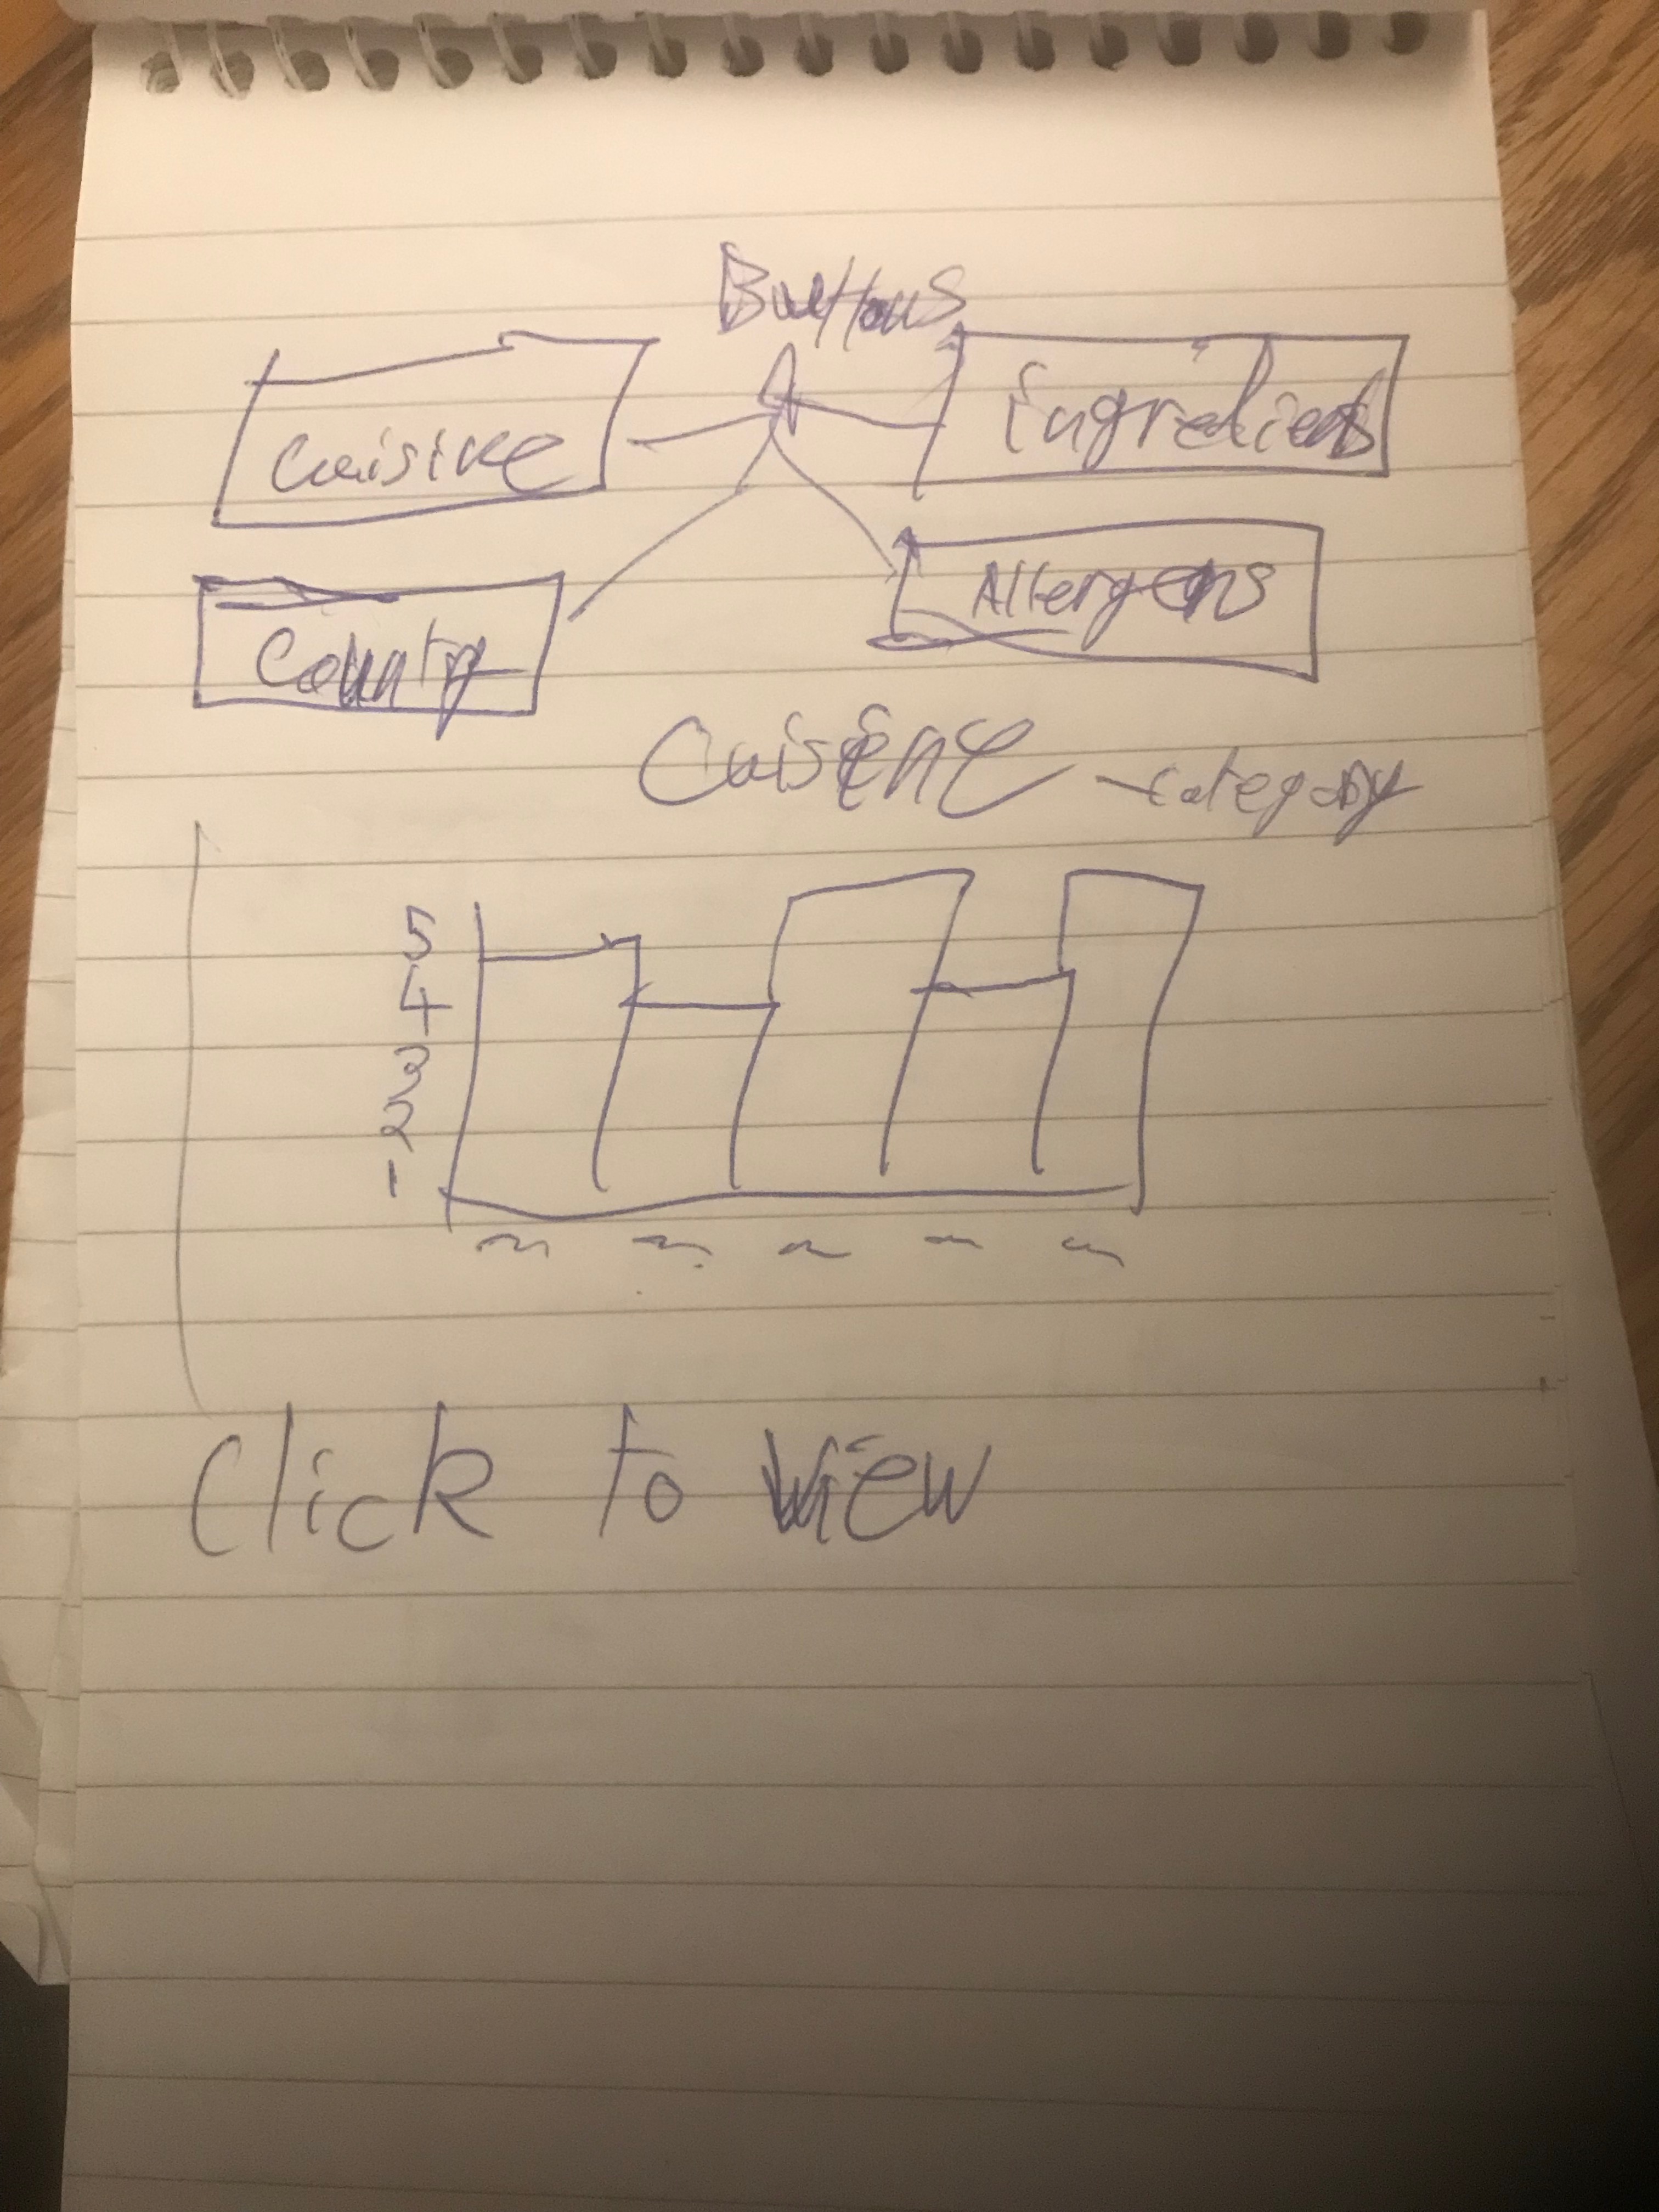 Buttons
Cuisine
ingredients
Country
Allergens
Cuisine - category
5
4
3
2
1
Click to view